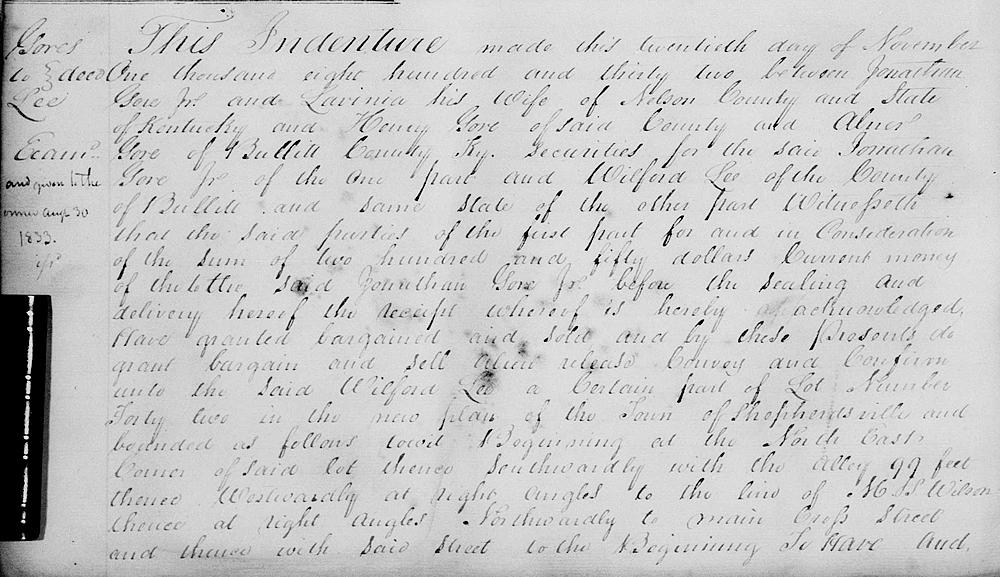 Gores
to } deed
Lee
Examd.
and given to the
owner Augt 30
1833.
This Indenture made this twentieth day of November
One thousand eight hundred and thirty two between Jonathan
Gore Jr. and Lavinia his Wife of Nelson County and State
of Kentucky and Henry Gore of said County and Abner
Gore of Bullitt County Ky. Securities for the said Jonathan
Gore Jr. of the One part and Wilford Lee of the County
of Bullitt and same state of the other part Witnesseth
that the said parties of the first part for and in Consideration
of the sum of two hundred and fifty dollars Current money
of the said Jonathan Gore Jr. before the sealing and
delivery hereof the receipt whereof is hereby acknowledged,
Have granted bargained and sold and by these Presents do
grant bargain and sell alien release Convey and Confirm
unto the said Wilford Lee a Certain part of Lot Number
Forty two in the new plan of the Town of Shepherdsville and
bounded as follows towit Beginning at the North East
Corner of said lot thence Southwardly with the Alley 99 feet
thence Westwardly at right angles to the line of M. S. Wilson
thence at right angles Northwardly to main Cross Street
and thence with said street to the Beginning To Have And,